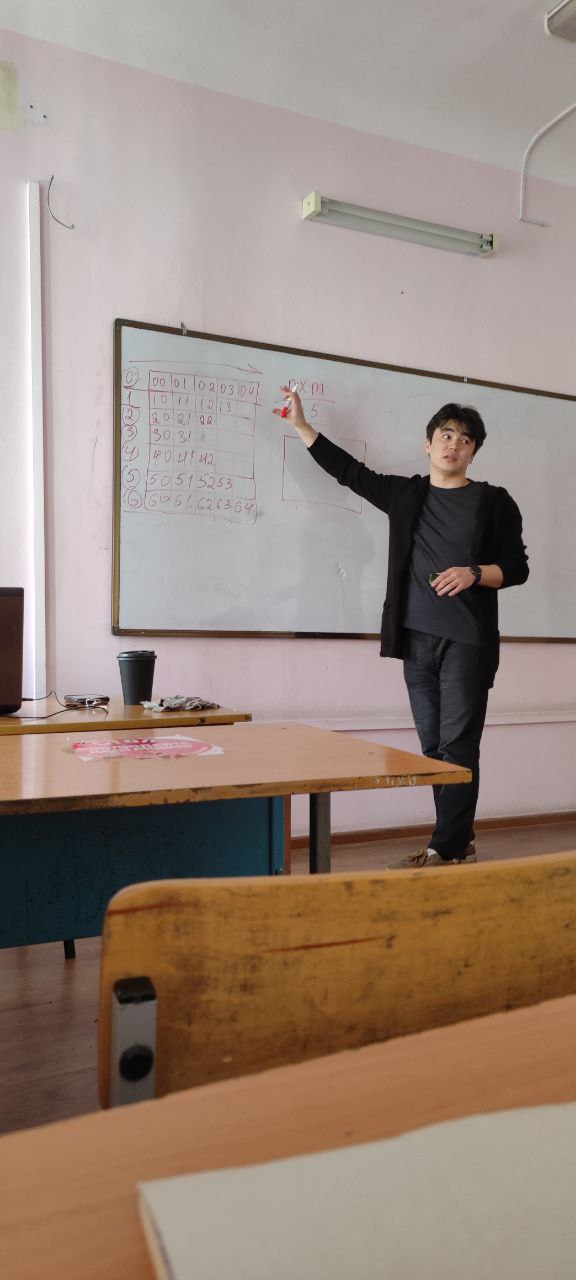 0 00 01 02 03 04
1 10 11 12 13
2 20 21 22
3 30 31
4 40 41 42
5 50 51 52 53
6 60 61 62 63 64
n x m
5